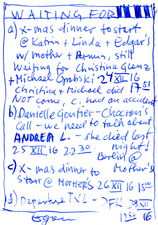 WAITING FOR
a) X-mas dinner to start
@ Katrin + Linda + Edgar's
w/ mother + Armin, still
Waiting for Christina Glanz
+ Michael Grobski 24 XII 16
Christina + Michael did 17 51
Not come, C. had an accident
b) Danielle Gontier-Chacron's
Call - we need to talk about
ANDREA L. - she died last
night!
25 XII 16 22 30 Berlin @
c) X-mas dinner to Mother's
start @ Mother's 26 XII 16
d) Departure TXL - DFW 28 XII
16